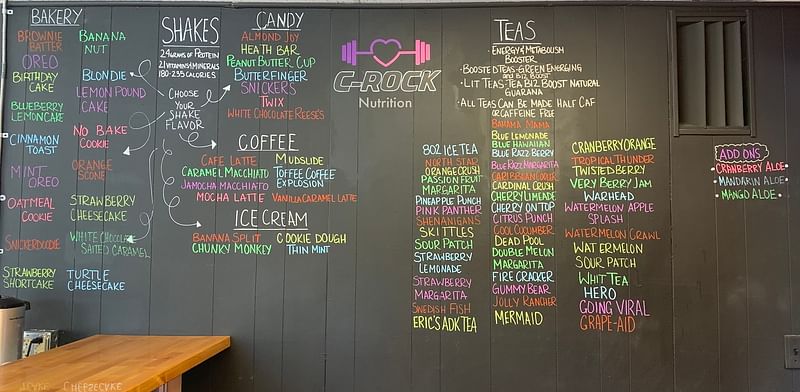 BAKERY
BROWNIE
BATTER
OREO
BIRTHDAY
CAKE
BLUEBERRY
LEMONCAKE
CINNAMON
TOAST
MINT
OREO
OATMEAL
COOKIE
SNICKERDOODLE
STRAWBERRY
SHORTCAKE
BANANA
NUT
BLONDIE
LEMON POUND
CAKE
NO BAKE
COOKIE
ORANGE
SCONE
STRAWBERRY
CHEESECAKE
WHITE CHOCOLATE
SALTED CARAMEL
TURTLE
CHEESECAKE
SHAKES
24 GRAMS OF PROTEIN
21 VITAMINS & MINERALS
180-235 CALORIES
CHOOSE
YOUR
SHAKE
FLAVOR
CANDY
ALMOND JOY
HEATH BAR
PEANUT BUTTER CUP
BUTTERFINGER
SNICKERS
TWIX
WHITE CHOCOLATE REESE'S
COFFEE
CAFE LATTE
CARAMEL MACCHIATO
JAMOCHA MACCHIATO
MOCHA LATTE
MUDSLIDE
TOFFEE COFFEE
EXPLOSION
VANILLA CARAMEL LATTE
ICE CREAM
BANANA SPLIT
CHUNKY MONKEY
COOKIE DOUGH
THIN MINT
C-ROCK
Nutrition
TEAS
• ENERGY & METABOLISM
BOOSTER
• BOOSTED TEAS-GREEN ENERGING
AND BIZ BOOST
• LIT TEAS-TEA BIZ BOOST NATURAL
GUARANA
• ALL TEAS CAN BE MADE HALF CAF
OR CAFFEINE FREE
80Z ICE TEA
NORTH STAR
ORANGE CRUSH
PASSION FRUIT
MARGARITA
PINEAPPLE PUNCH
PINK PANTHER
SHENANIGANS
SKITTLES
SOUR PATCH
STRAWBERRY
LEMONADE
STRAWBERRY
MARGARITA
SWEDISH FISH
ERIC'S ADK TEA
BAHAMA MAMA
BLUE LEMONADE
BLUE HAWAIIAN
BLUE RAZZ BERRY
BLUE RAZZ MARGARITA
CARIBBEAN COOLER
CARDINAL CRUSH
CHERRY LIMEADE
CHERRY ON TOP
CITRUS PUNCH
COOL CUCUMBER
DEAD POOL
DOUBLE MELON
MARGARITA
FIRE CRACKER
GUMMY BEAR
JOLLY RANCHER
MERMAID
CRANBERRY ORANGE
TROPICAL THUNDER
TWISTED BERRY
VERY BERRY JAM
WARHEAD
WATERMELON APPLE
SPLASH
WATERMELON CRAWL
WATERMELON
SOUR PATCH
WHIT TEA
HERO
GOING VIRAL
GRAPE-AID
ADD ONS
• CRANBERRY ALOE •
• MANDARIN ALOE •
• MANGO ALOE •